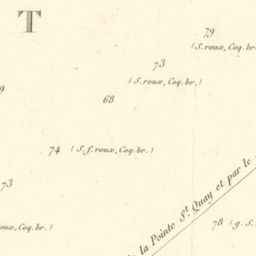 T
79
(S. roux, Coq. br.
73
(S. roux, Coq. br.)
9
68
74 (S. f. roux, Coq. br.)
73
roux, Coq. br.)
la Pointe St. Quay et par le
78 (g. S.